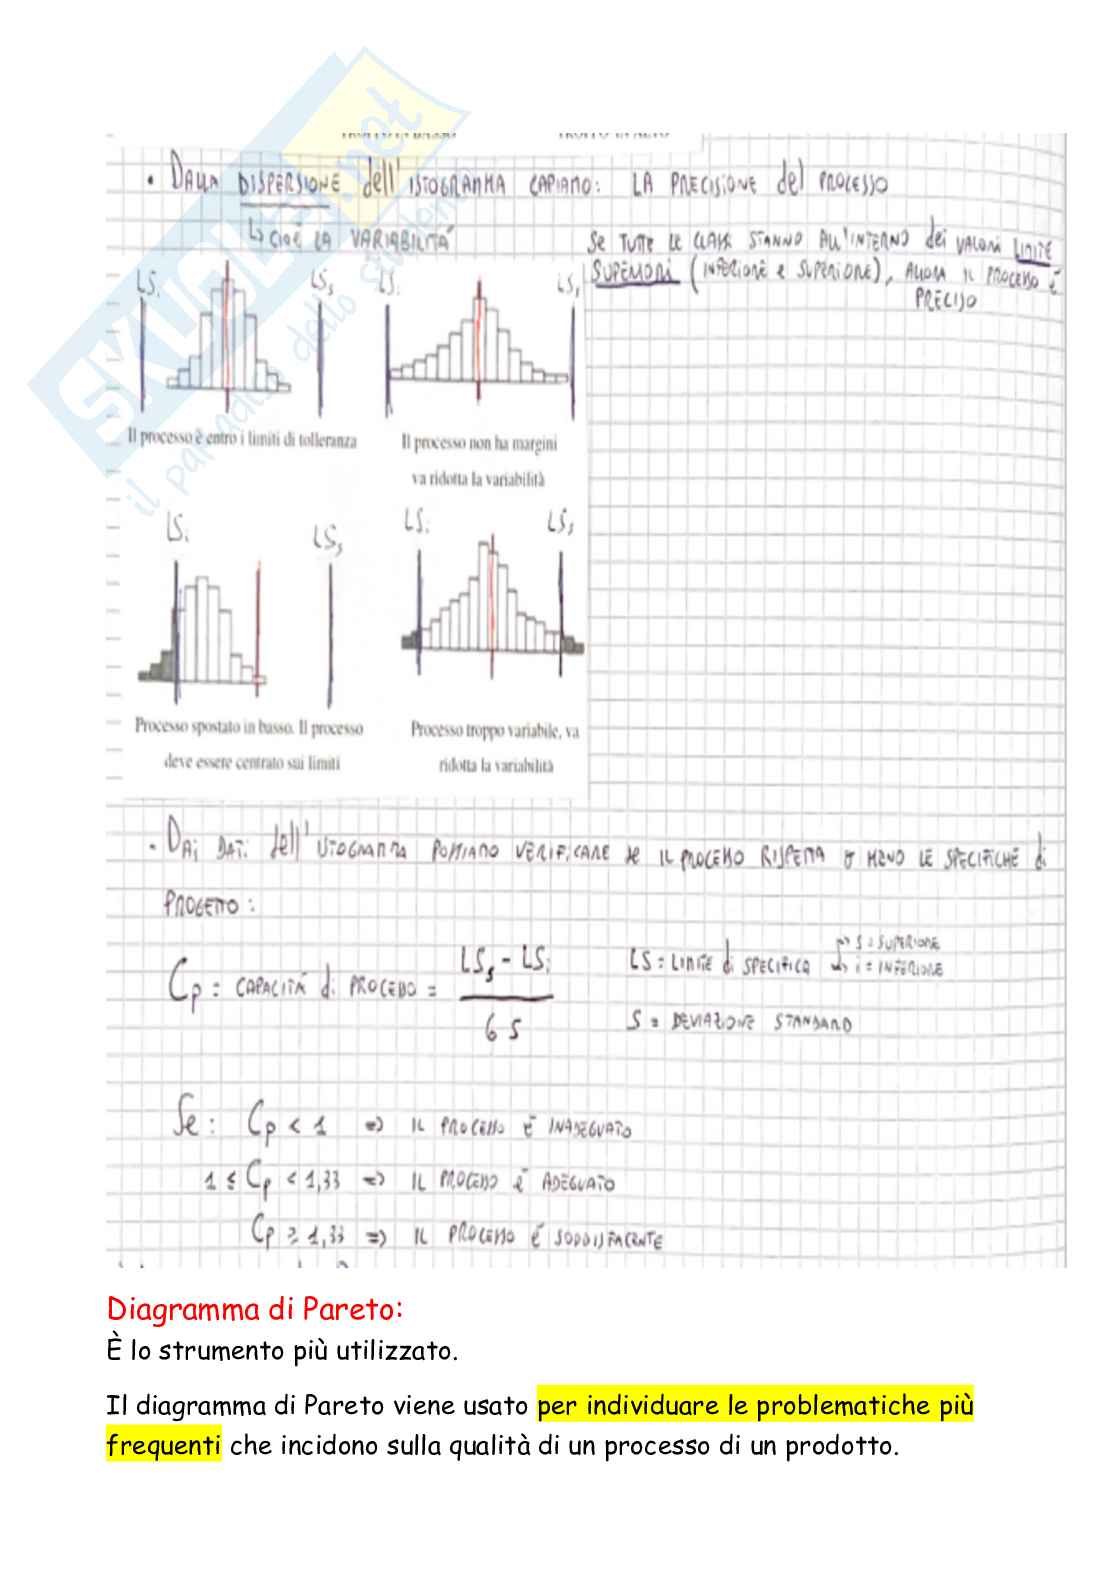 • DALLA DISPERSIONE dell'ISTOGRAMMA CAPIAMO: LA PRECISIONE del PROCESSO
↳ CIOÈ LA VARIABILITÀ
SE TUTTE LE CLASSI STANNO ALL'INTERNO dei VALORI LIMITE
SUPERIORI (INFERIORE E SUPERIORE), ALLORA IL PROCESSO È
PRECISO
LSi LSs LSi LSs
Il processo è entro i limiti di tolleranza
Il processo non ha margini
va ridotta la variabilità
LSi LSs LSi LSs
Processo spostato in basso. Il processo
deve essere centrato sui limiti
Processo troppo variabile, va
ridotta la variabilità
• DAI DATI dell'ISTOGRAMMA POSSIAMO VERIFICARE SE IL PROCESSO RISPETTA O MENO LE SPECIFICHE di
PROGETTO:
Cp = CAPACITÀ di PROCESSO = LSs - LSi / 6 S
LS = LIMITE di SPECIFICA → S = SUPERIORE
→ i = INFERIORE
S = DEVIAZIONE STANDARD
Se: Cp < 1 => IL PROCESSO È INADEGUATO
1 ≤ Cp < 1,33 => IL PROCESSO È ADEGUATO
Cp ≥ 1,33 => IL PROCESSO È SODDISFACENTE
Diagramma di Pareto:
È lo strumento più utilizzato.
Il diagramma di Pareto viene usato per individuare le problematiche più
frequenti che incidono sulla qualità di un processo di un prodotto.
SKUOLA.net
il portale dello studente